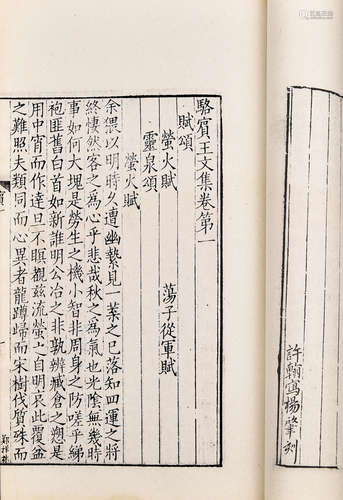 駱賓王文集卷第一
賦頌
螢火賦　蕩子從軍賦
靈泉頌
螢火賦
余猥以明時久遭幽縶見一葉之已落知四運之將
終悽然客之為心乎悲哉秋之為氣也光陰無幾時
事如何大塊是勞生之機小智非周身之防嗟乎綈
袍匪舊白首如新誰明公冶之非孰辨臧倉之愬是
用中宵而作達旦不瞑覩茲流螢之自明哀此覆盆
之難照夫類同而心異者龍蹲歸而宋樹伐質殊而
許翰寫楊肇刻